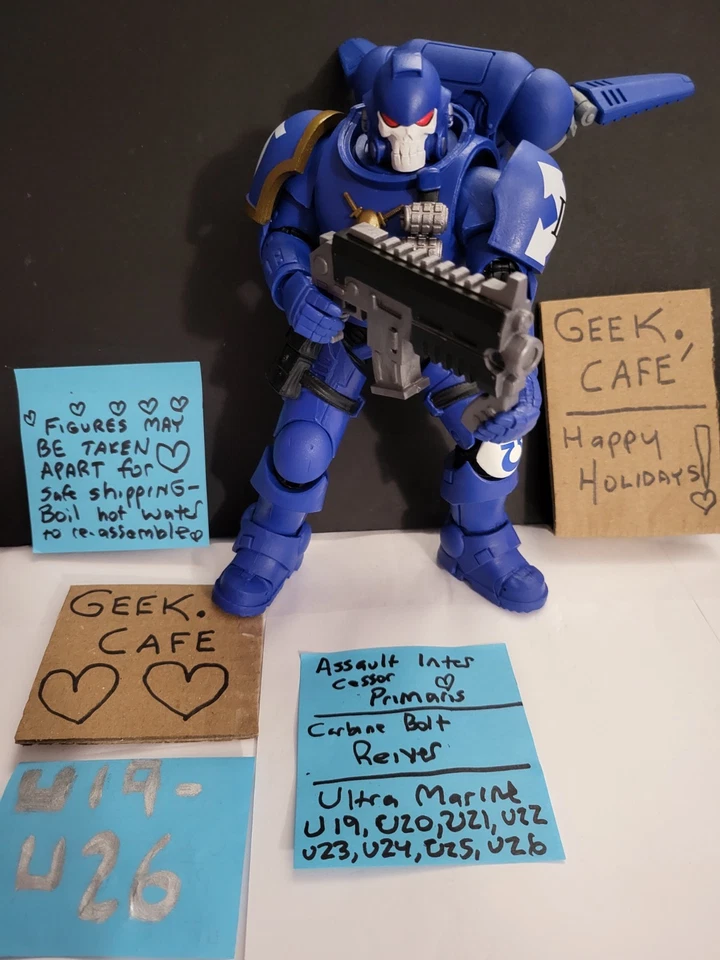 FIGURES MAY
BE TAKEN
APART for
Safe shipping-
Boil hot water
to re-assemble
GEEK.
CAFÉ
Happy
HOLIDAYS!
GEEK.
CAFE
U19-
U26
Assault Inter
Cessor
Primaris
Carbine Bolt
Reiver
Ultra Marine
U19, U20, U21, U22
U23, U24, U25, U26